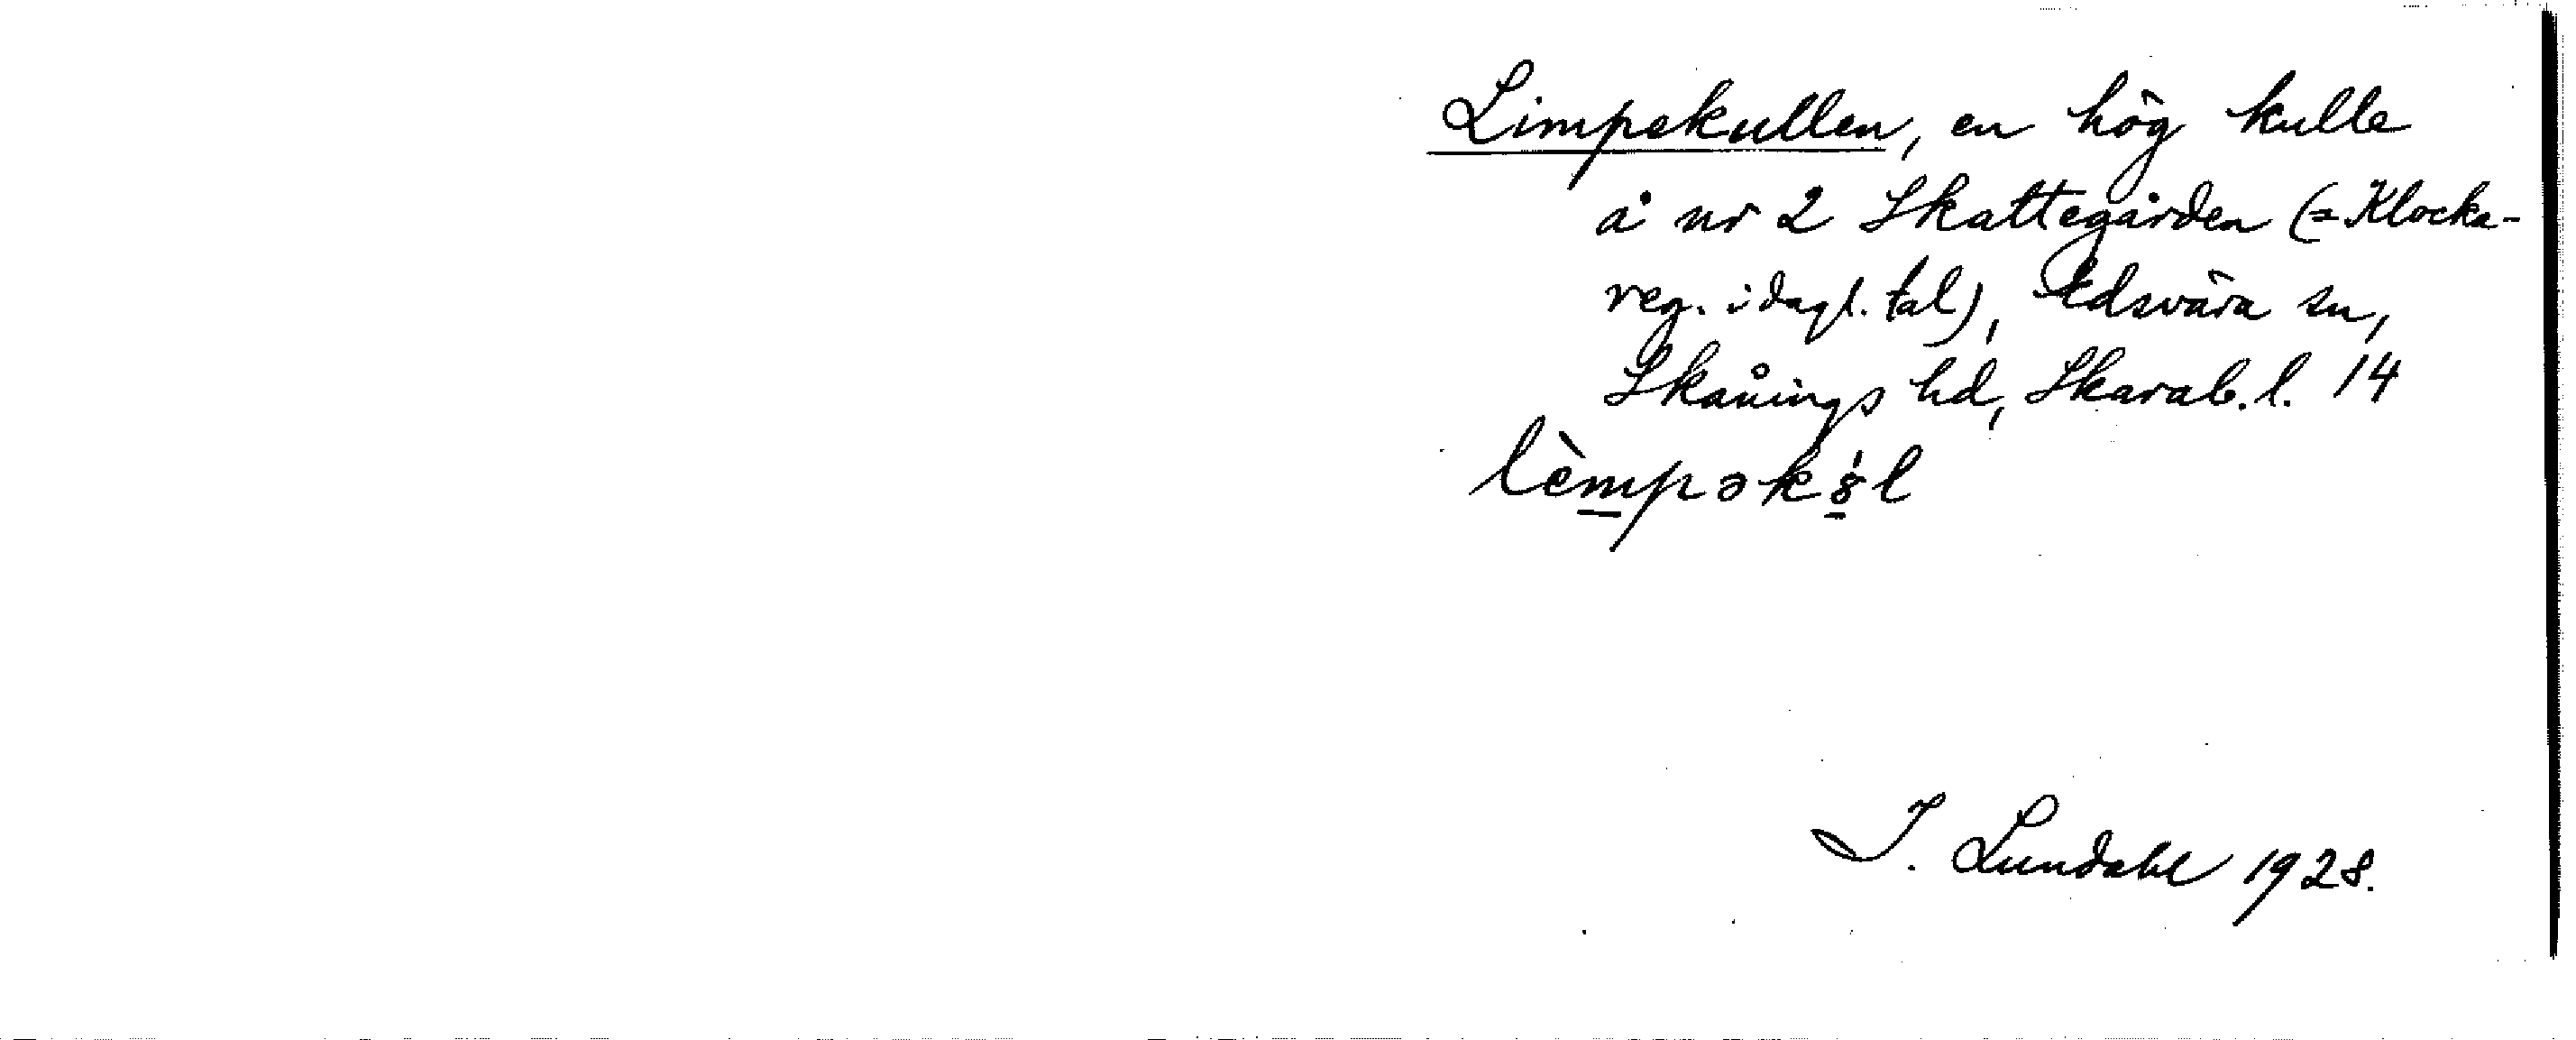 Limpekullen, en hög kulle
å nr 2 Skattegården (= Klocka-
reg. i dagl. tal), Edsvära sn,
Skånings hd, Skarab. l. 14
lèmpək
I. Lundahl 1928.